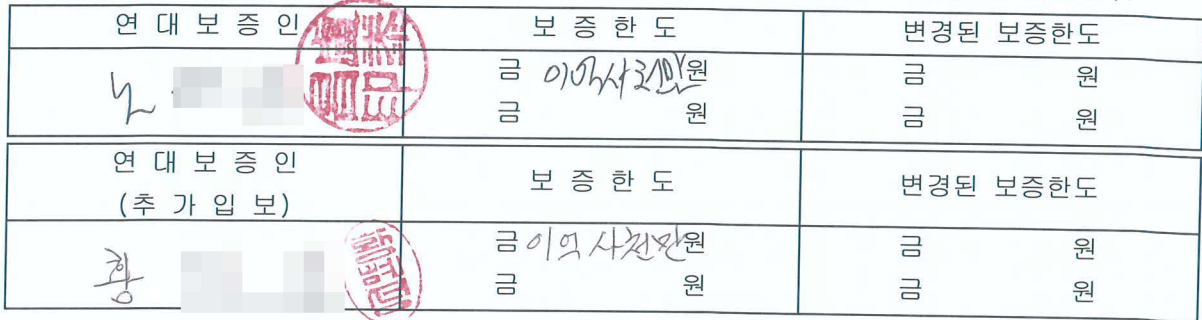 연 대 보 증 인 보 증 한 도 변경된 보증한도
노 금 이억사천만원 금 원
금 원 금 원
연 대 보 증 인
(추 가 입 보) 보 증 한 도 변경된 보증한도
황 금 이억사천만원 금 원
금 원 금 원